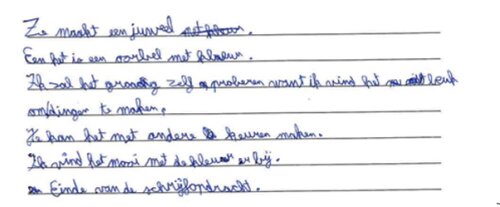 Ze maakt een juweel met kleur.
Een het is een oorbel met kleur.
Ik zal het graag zelf proberen want ik vind het leuk
om dingen te maken.
Je kan het met andere keuren maken.
Ik vind het mooi met de kleur er bij.
Einde van de schrijfopdracht.